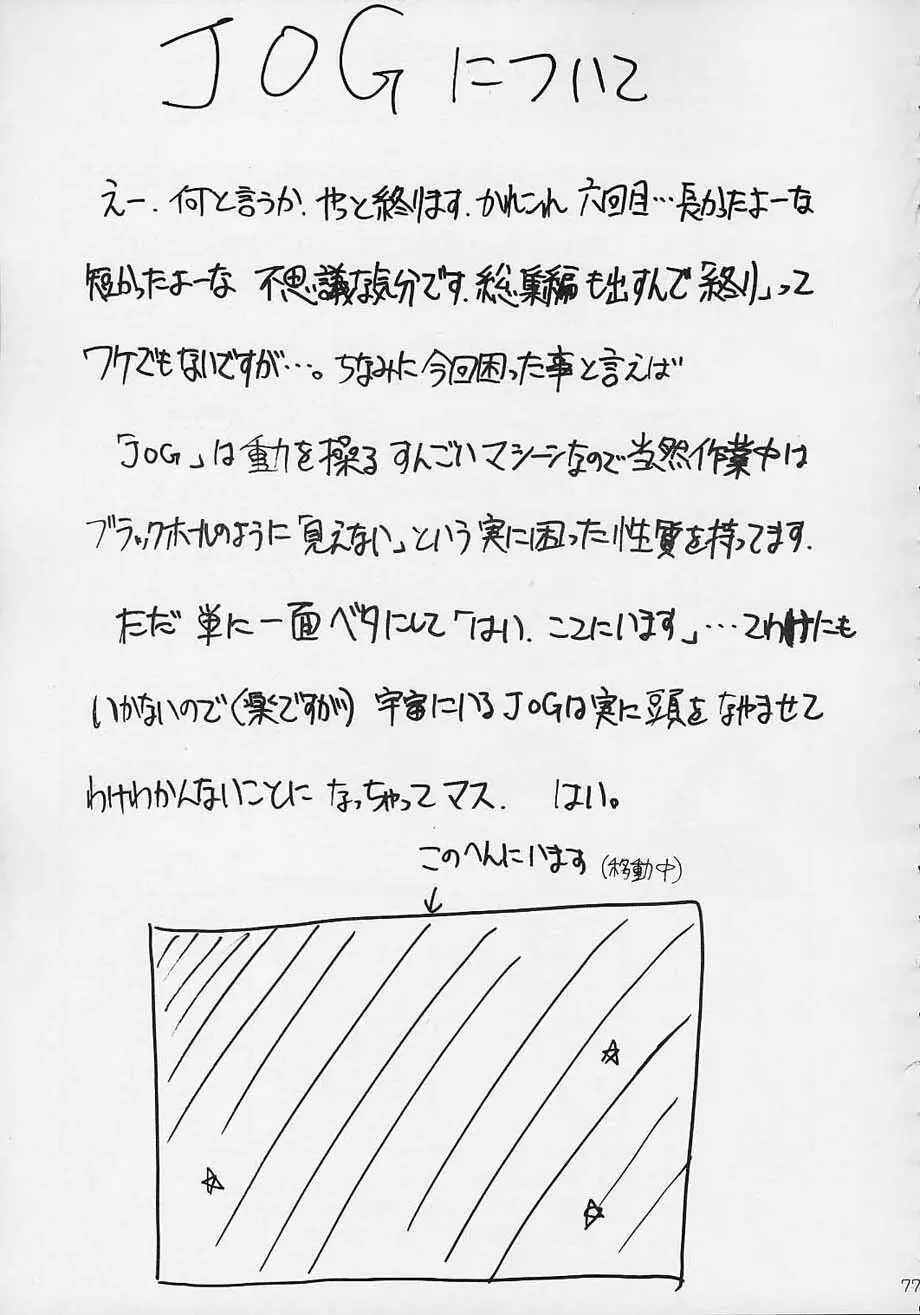 JOGについて
えー.何と言うか.やっと終ります.かれこれ 六回目…長かったよーな
短かったよーな 不思議な気分です.総集編も出すんで「終り」って
ワケでもないですが…。ちなみに今回困った事と言えば
「JOG」は重力を操る すんごいマシーンなので当然作業中は
ブラックホールのように「見えない」という実に困った性質を持ってます.
ただ 単に一面ベタにして「はい.ここにいます」…てわけにも
いかないので(楽ですが) 宇宙にいるJOGは実に頭をなやませて
わけわかんないことに なっちゃってマス. はい。
このへんにいます (移動中)
77